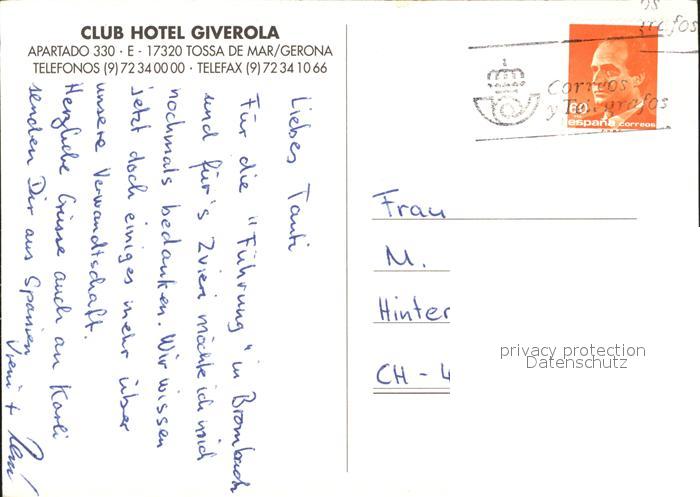 CLUB HOTEL GIVEROLA
APARTADO 330 · E - 17320 TOSSA DE MAR/GERONA
TELEFONOS (9) 72 34 00 00 · TELEFAX (9) 72 34 10 66
Liebes Tanti
Für die "Führung" in Brombach
und für's Zvieri möchte ich mich
nochmals bedanken. Wir wissen
jetzt doch einiges mehr über
unsere Verwandtschaft.
Herzliche Grüsse auch an Karli
senden Dir aus Spanien
Vreni + René
Correos
y Telégrafos
60
españa correos
Frau
M.
Hinter
CH - 4
privacy protection
Datenschutz